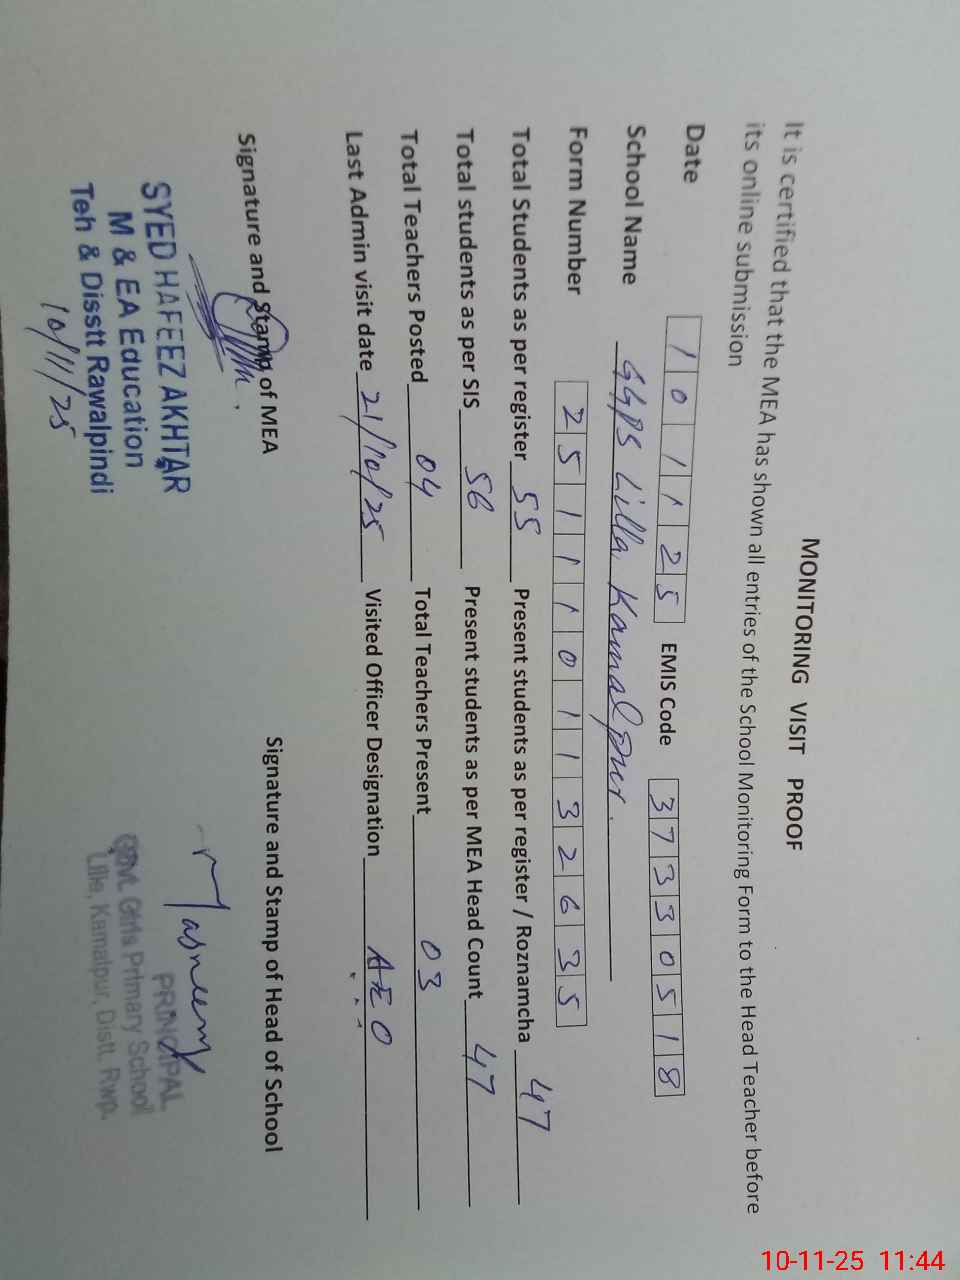 MONITORING VISIT PROOF
It is certified that the MEA has shown all entries of the School Monitoring Form to the Head Teacher before
its online submission
Date 1 0 1 1 2 5 EMIS Code 3 7 3 3 0 5 1 8
School Name GGPS Lilla Kamalpur.
Form Number 2 5 1 1 1 0 1 1 3 2 6 3 5
Total Students as per register 55 Present students as per register / Roznamcha 47
Total students as per SIS 56 Present students as per MEA Head Count 47
Total Teachers Posted 04 Total Teachers Present 03
Last Admin visit date 21/10/25 Visited Officer Designation AEO
Signature and Stamp of MEA Signature and Stamp of Head of School
SYED HAFEEZ AKHTAR
M & EA Education
Teh & Disstt Rawalpindi
10/11/25
Tasneem
PRINCIPAL
Govt. Girls Primary School
Lilla, Kamalpur, Distt. Rwp.
10-11-25 11:44